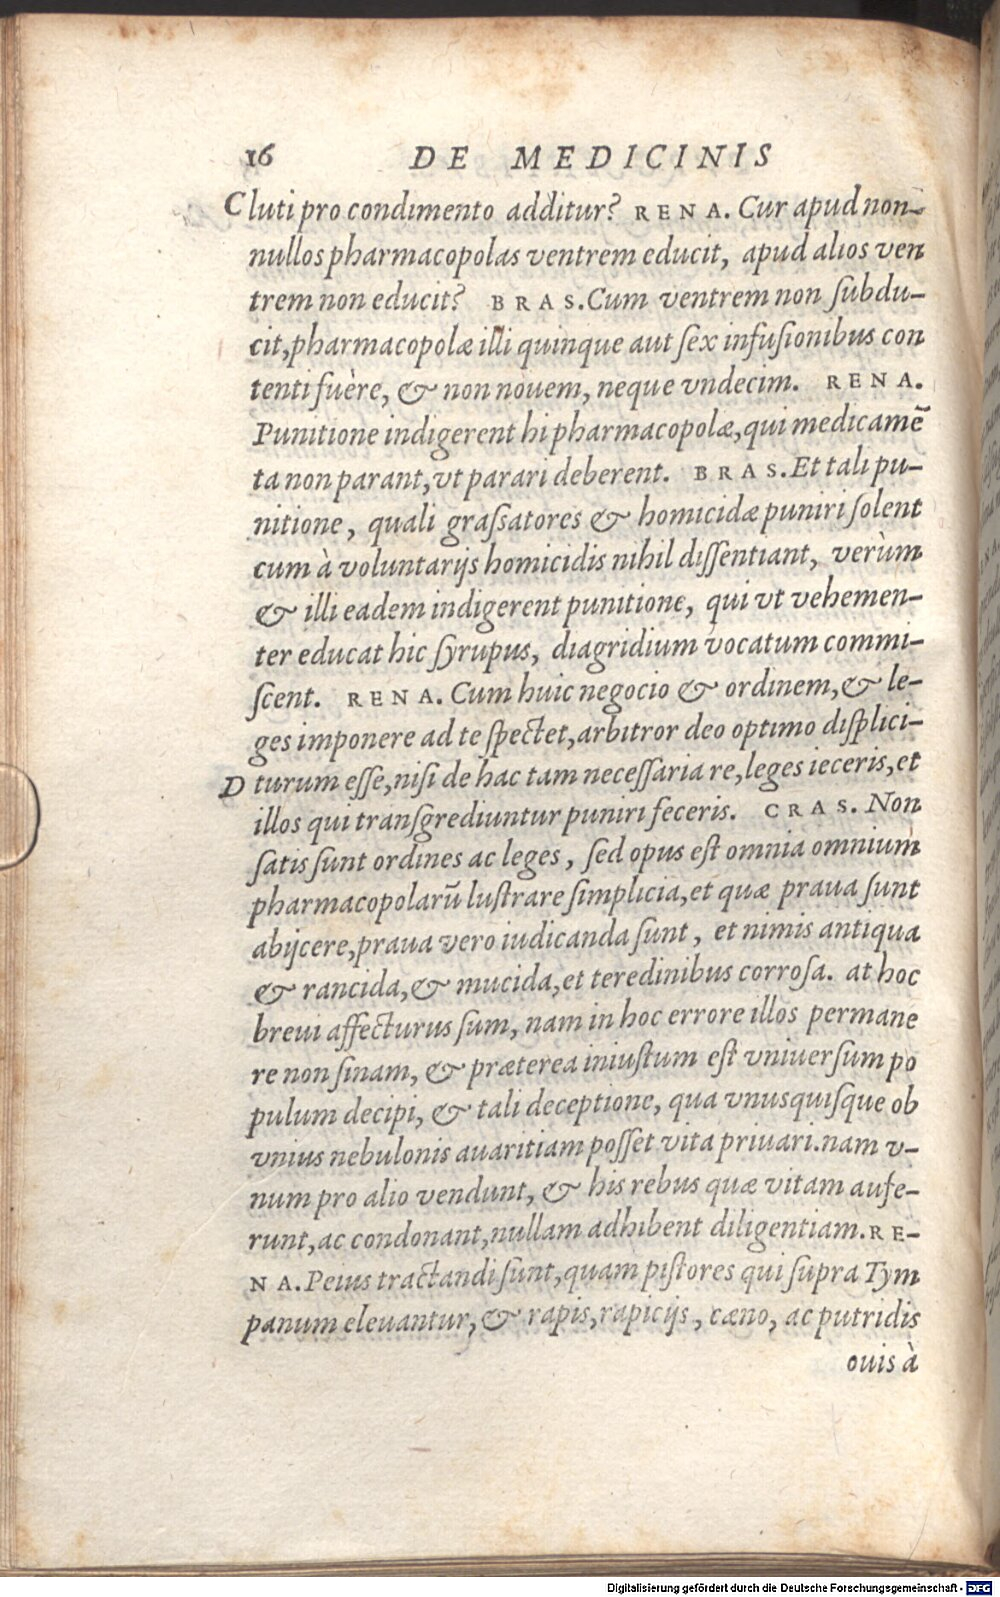 16 DE MEDICINIS
C luti pro condimento additur? RENA. Cur apud non-
nullos pharmacopolas ventrem educit, apud alios ven
trem non educit? BRAS. Cum ventrem non ſubdu-
cit, pharmacopolæ illi quinque aut ſex infuſionibus con
tenti fuère, & non nouem, neque vndecim. RENA.
Punitione indigerent hi pharmacopolæ, qui medicamē
ta non parant, vt parari deberent. BRAS. Et tali pu-
nitione, quali graſſatores & homicidæ puniri ſolent
cum à voluntarijs homicidis nihil diſſentiant, verùm
& illi eadem indigerent punitione, qui vt vehemen-
ter educat hic ſyrupus, diagridium vocatum commi-
ſcent. RENA. Cum huic negocio & ordinem, & le-
ges imponere ad te ſpectet, arbitror deo optimo diſplici-
D turum eſſe, niſi de hac tam neceſſaria re, leges ieceris, et
illos qui tranſgrediuntur puniri feceris. CRAS. Non
ſatis ſunt ordines ac leges, ſed opus eſt omnia omnium
pharmacopolarū luſtrare ſimplicia, et quæ praua ſunt
abijcere, praua vero iudicanda ſunt, et nimis antiqua
& rancida, & mucida, et teredinibus corroſa. at hoc
breui affecturus ſum, nam in hoc errore illos permane
re non ſinam, & præterea iniuſtum eſt vniuerſum po
pulum decipi, & tali deceptione, qua vnuſquiſque ob
vnius nebulonis auaritiam poſſet vita priuari. nam v-
num pro alio vendunt, & his rebus quæ vitam aufe-
runt, ac condonant, nullam adhibent diligentiam. RE-
NA. Peius tractandi ſunt, quam piſtores qui ſupra Tym
panum eleuantur, & rapis, rapicijs, cæno, ac putridis
ouis à
Digitalisierung gefördert durch die Deutsche Forschungsgemeinschaft - DFG